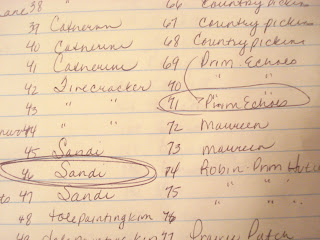 38 "
39 Catherine
40 Catherine
41 Catherine
42 Firecracker
43 " "
44 " "
45 Sandi
46 Sandi
47 Sandi
48 tolepaintingkim
66 Country pickins
67 Country pickins
68 Country pickins
69 Prim Echoes
70 " "
71 Prim Echoes
72 Maureen
73 Maureen
74 Robin-Prim Hutch
75 " " "
76
77 Prairie Patch